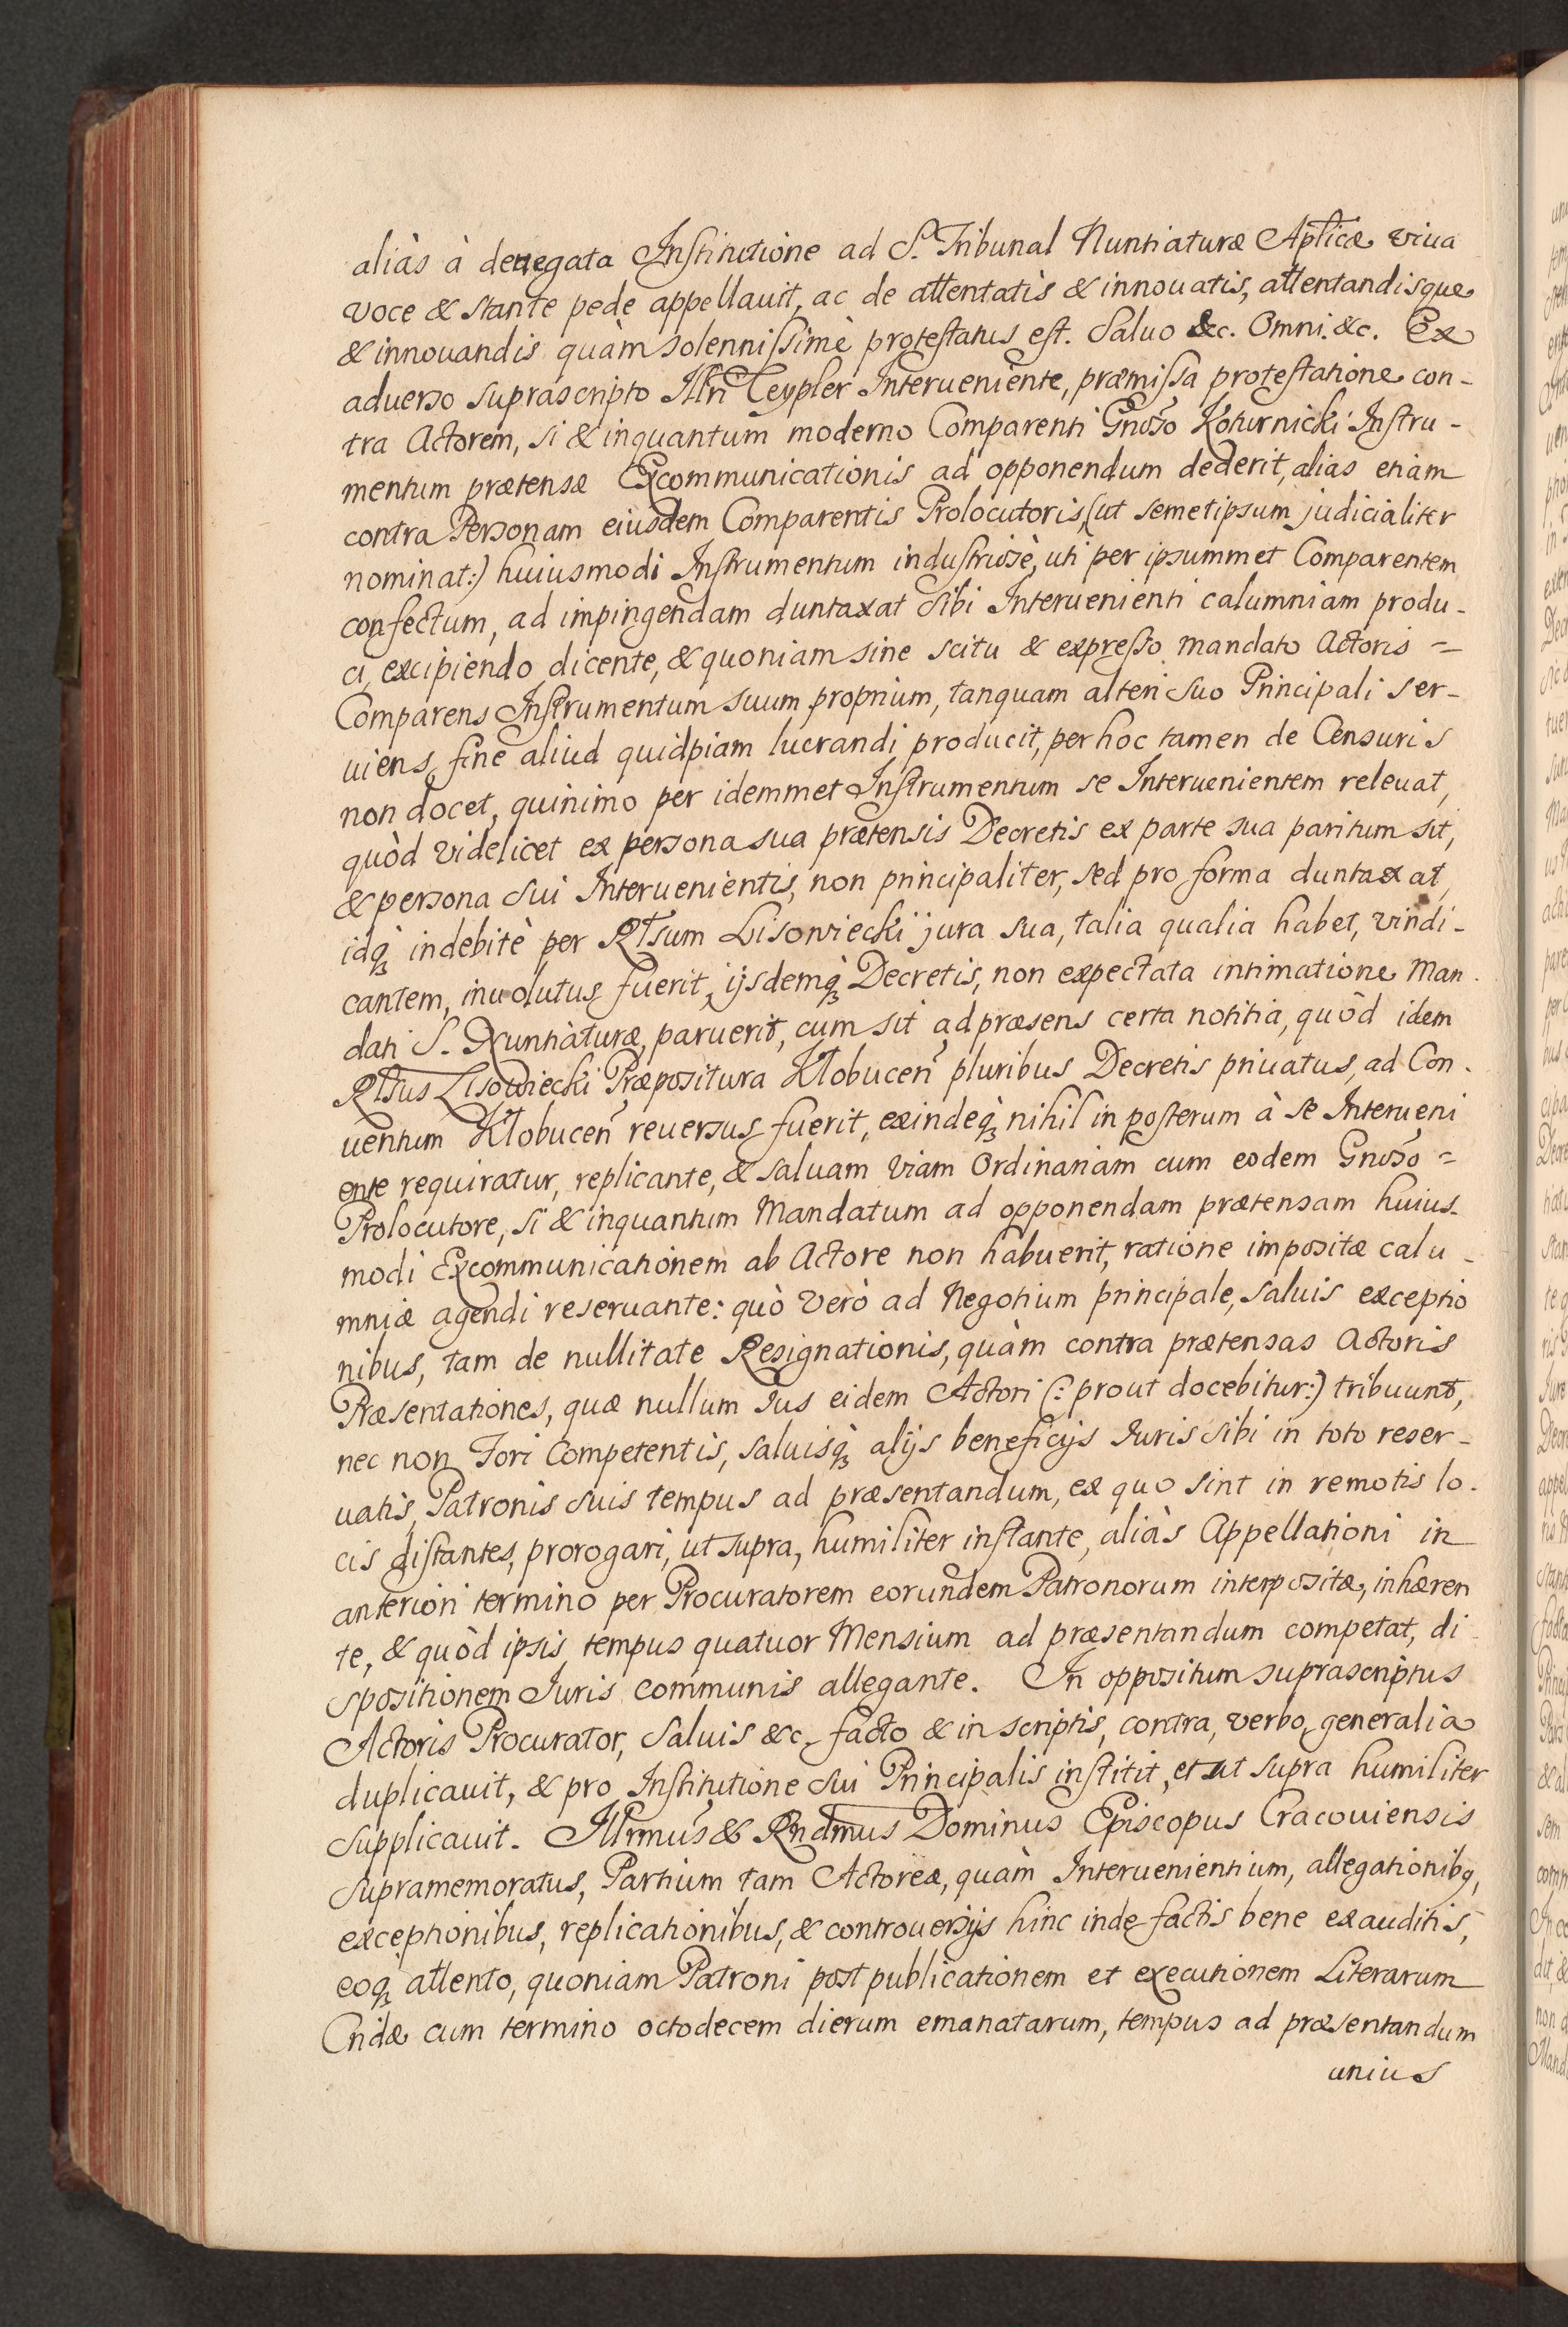 aliàs à denegata Institutione ad S. Tribunal Nuntiaturæ Aplicæ viua
voce & stante pede appellauit, ac de attentatis & innouatis, attentandisque
& innouandis quàm solennissimè protestatus est. Saluo &c. Omni. &c. Ex
aduerso suprascripto Illri Teypler Interueniente, præmissa protestatione con-
tra Actorem, si & inquantum moderno Comparenti Gnoso Koturnicki Instru-
mentum prætensæ Excommunicationis ad opponendum dederit, alias etiam
contra Personam eiusdem Comparentis Prolocutoris, (ut semetipsum judicialiter
nominat:) huiusmodi Instrumentum industriosè, uti per ipsummet Comparentem
confectum, ad impingendam duntaxat sibi Interuenienti calumniam produ-
ci, excipiendo dicente, & quoniam sine scitu & expresso mandato Actoris =
Comparens Instrumentum suum proprium, tanquam alteri suo Principali ser-
uiens, fine aliud quidpiam lucrandi producit, per hoc tamen de Censuris
non docet, quinimo per idemmet Instrumentum se Interuenientem releuat,
quòd videlicet ex persona sua prætensis Decretis ex parte sua paritum sit,
& persona sui Interuenientis, non principaliter, sed pro forma duntaxat,
idq; indebitè per Rlsum Lisowiecki jura sua, talia qualia habet, vindi-
cantem, inuolutus fuerit, ijsdemq; Decretis, non expectata intimatione Man-
dati S. Nuntiaturæ, paruerit, cum sit ad præsens certa notitia, quòd idem
Rlsus Lisowiecki Præpositura Kłobucen pluribus Decretis priuatus, ad Con-
uentum Kłobucen reuersus fuerit, exindeq; nihil in posterum à se Interueni
ente requiratur, replicante, & saluam viam Ordinariam cum eodem Gnoso =
Prolocutore, si & inquantum Mandatum ad opponendam prætensam huius-
modi Excommunicationem ab Actore non habuerit, ratione impositæ calu-
mniæ agendi reseruante: quò verò ad Negotium principale, saluis exceptio
nibus, tam de nullitate Resignationis, quàm contra prætensas Actoris
Præsentationes, quæ nullum ius eidem Actori (: prout docebitur:) tribuunt,
nec non Fori Competentis, saluisq; alijs beneficijs Iuris sibi in toto reser-
uatis, Patronis suis tempus ad præsentandum, ex quo sint in remotis lo-
cis distantes, prorogari, ut supra, humiliter instante, aliàs Appellationi in
anteriori termino per Procuratorem eorundem Patronorum interpositæ, inhæren
te, & quòd ipsis, tempus quatuor Mensium ad præsentandum competat, di
spositionem Iuris communis allegante. In oppositum suprascriptus
Actoris Procurator, Saluis &c. facto & in scriptis, contra, verbo generalia
duplicauit, & pro Institutione sui Principalis institit, et ut supra humiliter
supplicauit. Illrmus & Rndmus Dominus Episcopus Cracouiensis
supramemoratus, Partium tam Actoreæ, quàm Interuenientium, allegationibq,
exceptionibus, replicationibus, & controuersijs hinc inde factis bene exauditis,
eoq; attento, quoniam Patroni post publicationem et executionem Literarum
Cridæ cum termino octodecem dierum emanatarum, tempus ad præsentandum
unius